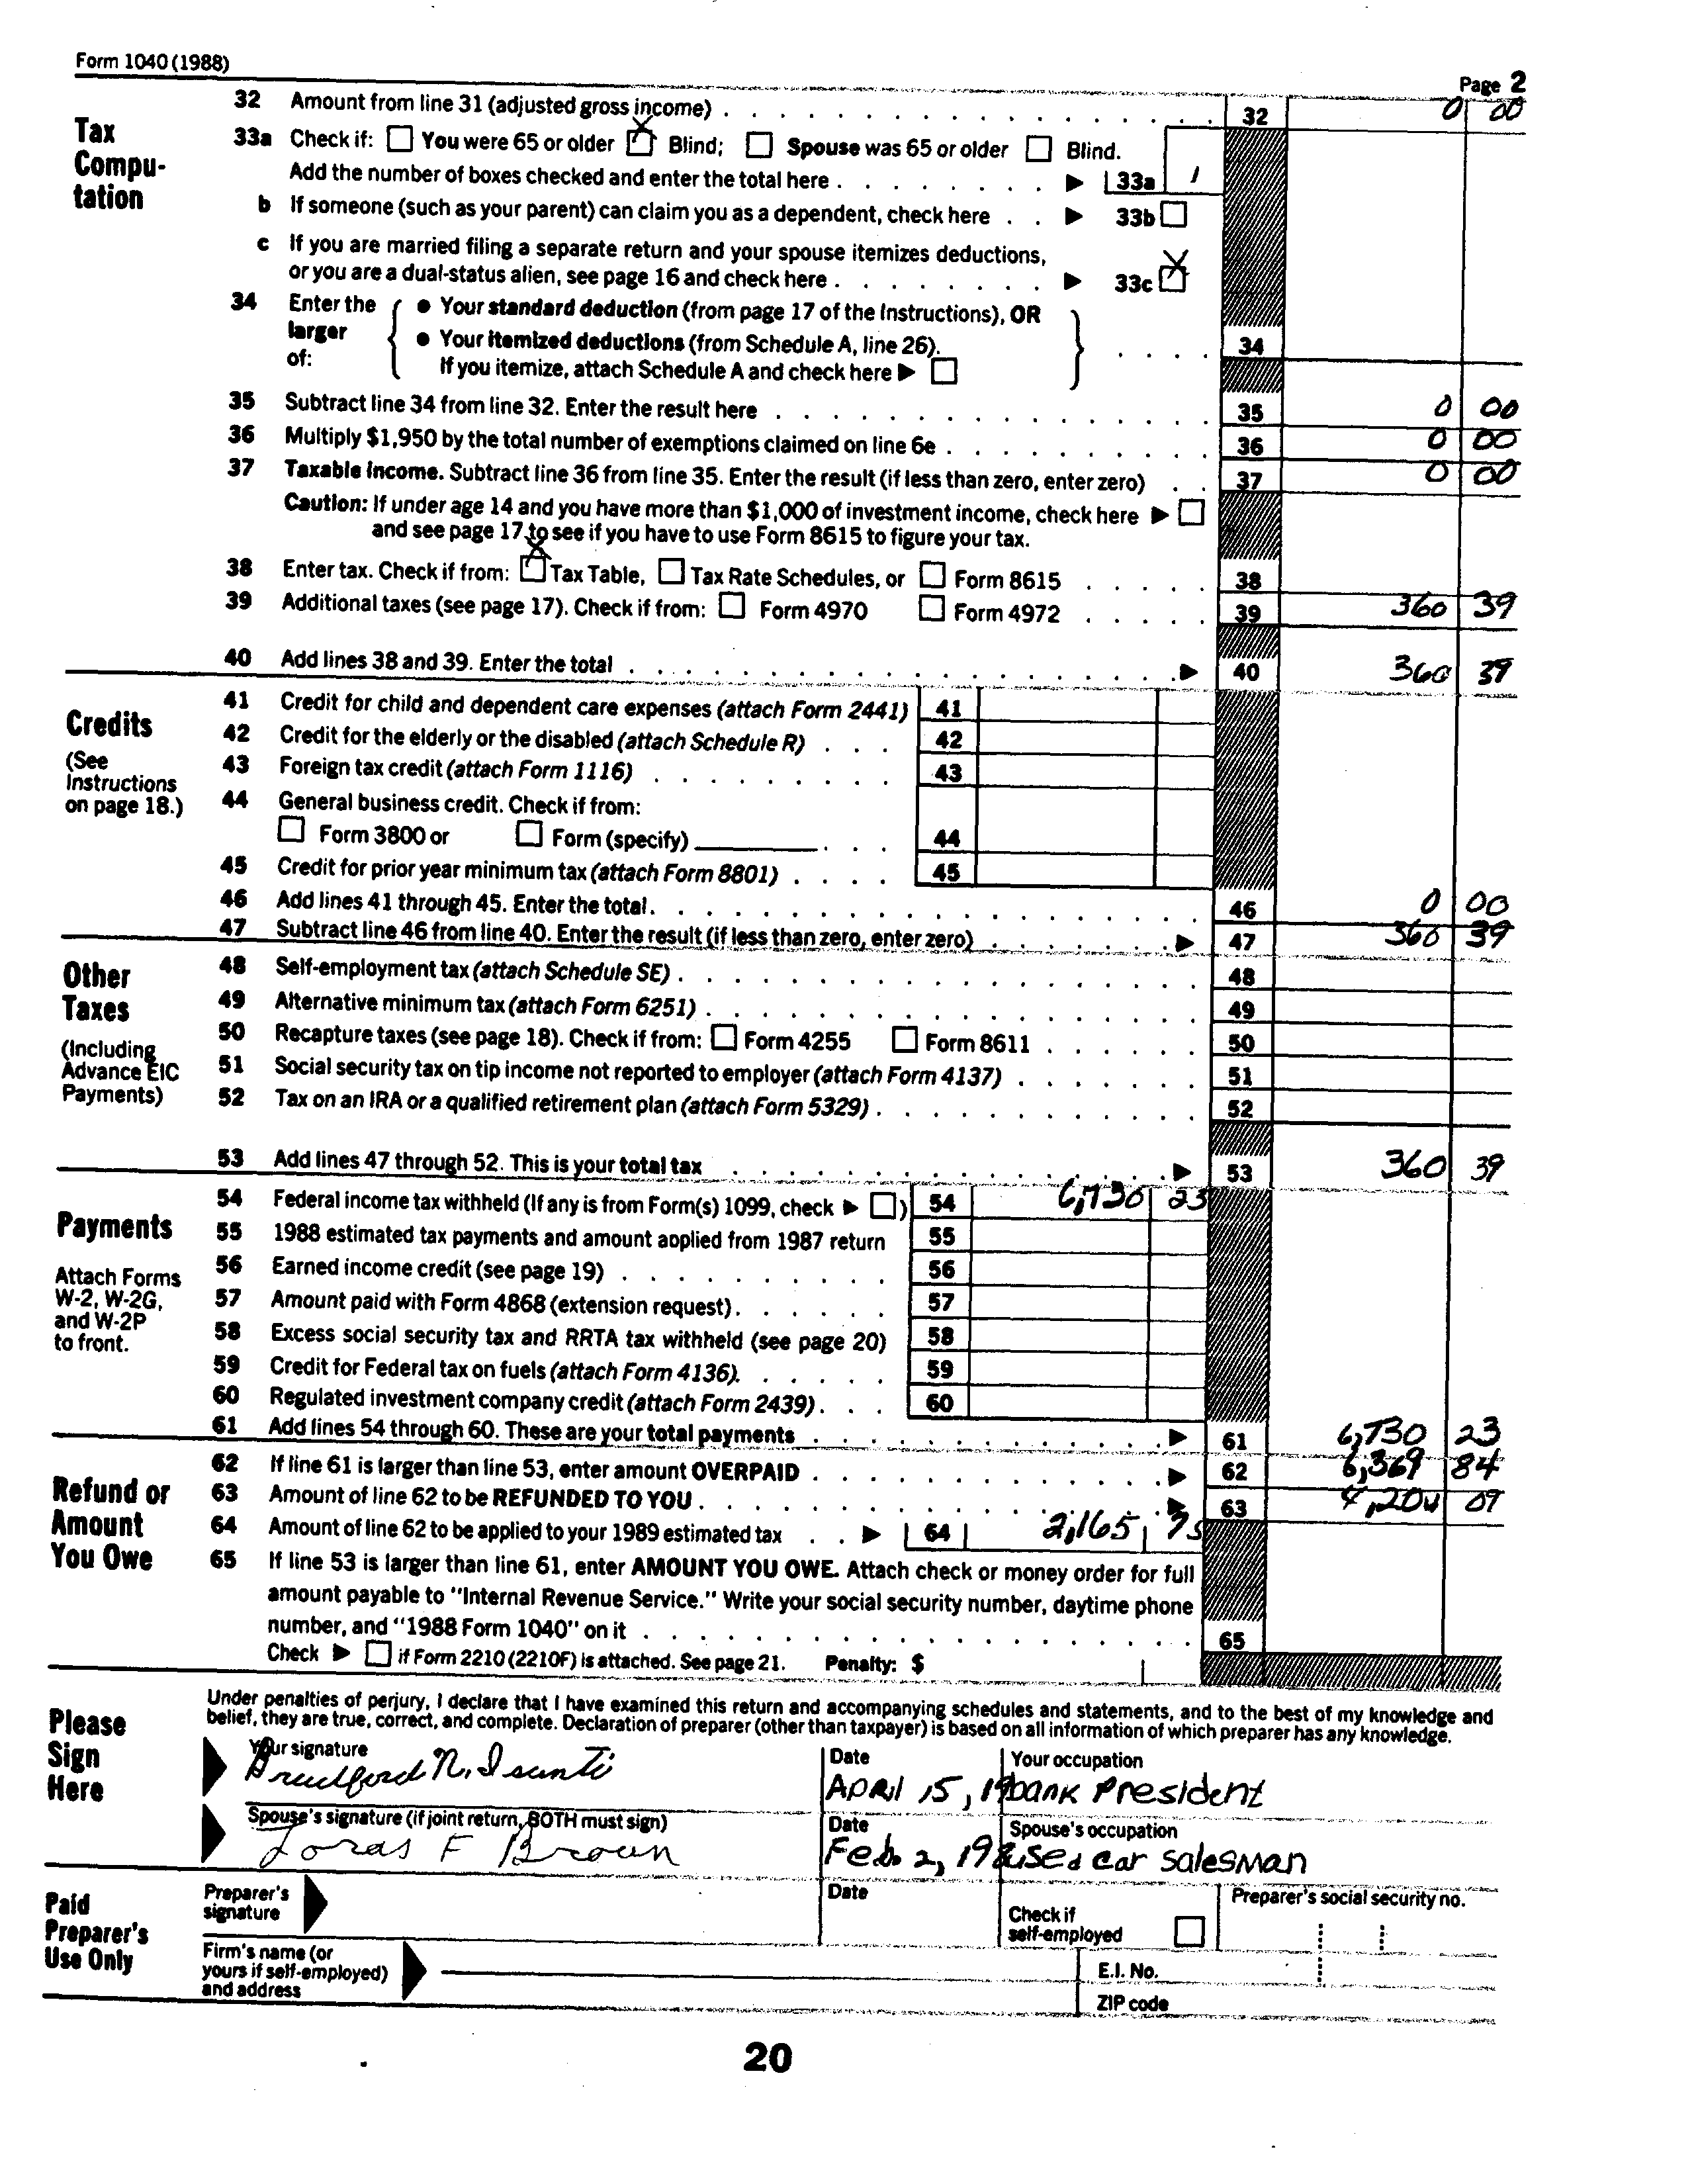 Form 1040 (1988)
Page 2
Tax Computation
32 Amount from line 31 (adjusted gross income) 32 0 00
33a Check if: You were 65 or older X Blind; Spouse was 65 or older Blind.
Add the number of boxes checked and enter the total here 33a 1
b If someone (such as your parent) can claim you as a dependent, check here 33b
c If you are married filing a separate return and your spouse itemizes deductions,
or you are a dual-status alien, see page 16 and check here 33c X
34 Enter the larger of: • Your standard deduction (from page 17 of the Instructions), OR
• Your itemized deductions (from Schedule A, line 26). 34
If you itemize, attach Schedule A and check here
35 Subtract line 34 from line 32. Enter the result here 35 0 00
36 Multiply $1,950 by the total number of exemptions claimed on line 6e 36 0 00
37 Taxable Income. Subtract line 36 from line 35. Enter the result (if less than zero, enter zero) 37 0 00
Caution: If under age 14 and you have more than $1,000 of investment income, check here
and see page 17 to see if you have to use Form 8615 to figure your tax.
38 Enter tax. Check if from: X Tax Table, Tax Rate Schedules, or Form 8615 38
39 Additional taxes (see page 17). Check if from: Form 4970 Form 4972 39 360 39
40 Add lines 38 and 39. Enter the total 40 360 39
Credits
(See Instructions on page 18.)
41 Credit for child and dependent care expenses (attach Form 2441) 41
42 Credit for the elderly or the disabled (attach Schedule R) 42
43 Foreign tax credit (attach Form 1116) 43
44 General business credit. Check if from:
Form 3800 or Form (specify) 44
45 Credit for prior year minimum tax (attach Form 8801) 45
46 Add lines 41 through 45. Enter the total 46 0 00
47 Subtract line 46 from line 40. Enter the result (if less than zero, enter zero) 47 360 39
Other Taxes
(Including Advance EIC Payments)
48 Self-employment tax (attach Schedule SE) 48
49 Alternative minimum tax (attach Form 6251) 49
50 Recapture taxes (see page 18). Check if from: Form 4255 Form 8611 50
51 Social security tax on tip income not reported to employer (attach Form 4137) 51
52 Tax on an IRA or a qualified retirement plan (attach Form 5329) 52
53 Add lines 47 through 52. This is your total tax 53 360 39
Payments
Attach Forms W-2, W-2G, and W-2P to front.
54 Federal income tax withheld (If any is from Form(s) 1099, check ) 54 6,730 23
55 1988 estimated tax payments and amount applied from 1987 return 55
56 Earned income credit (see page 19) 56
57 Amount paid with Form 4868 (extension request) 57
58 Excess social security tax and RRTA tax withheld (see page 20) 58
59 Credit for Federal tax on fuels (attach Form 4136) 59
60 Regulated investment company credit (attach Form 2439) 60
61 Add lines 54 through 60. These are your total payments 61 6,730 23
Refund or Amount You Owe
62 If line 61 is larger than line 53, enter amount OVERPAID 62 6,369 84
63 Amount of line 62 to be REFUNDED TO YOU 63 4,204 09
64 Amount of line 62 to be applied to your 1989 estimated tax 64 2,165 75
65 If line 53 is larger than line 61, enter AMOUNT YOU OWE. Attach check or money order for full
amount payable to "Internal Revenue Service." Write your social security number, daytime phone
number, and "1988 Form 1040" on it 65
Check if Form 2210 (2210F) is attached. See page 21. Penalty: $
Please Sign Here
Under penalties of perjury, I declare that I have examined this return and accompanying schedules and statements, and to the best of my knowledge and
belief, they are true, correct, and complete. Declaration of preparer (other than taxpayer) is based on all information of which preparer has any knowledge.
Your signature Date Your occupation
N. April 15, 19 bank President
Spouse's signature (if joint return, BOTH must sign) Date Spouse's occupation
Loras F Brown Feb. 2, 198 used car salesman
Paid Preparer's Use Only
Preparer's signature Date Check if self-employed Preparer's social security no.
Firm's name (or yours if self-employed) and address
E.I. No.
ZIP code
20